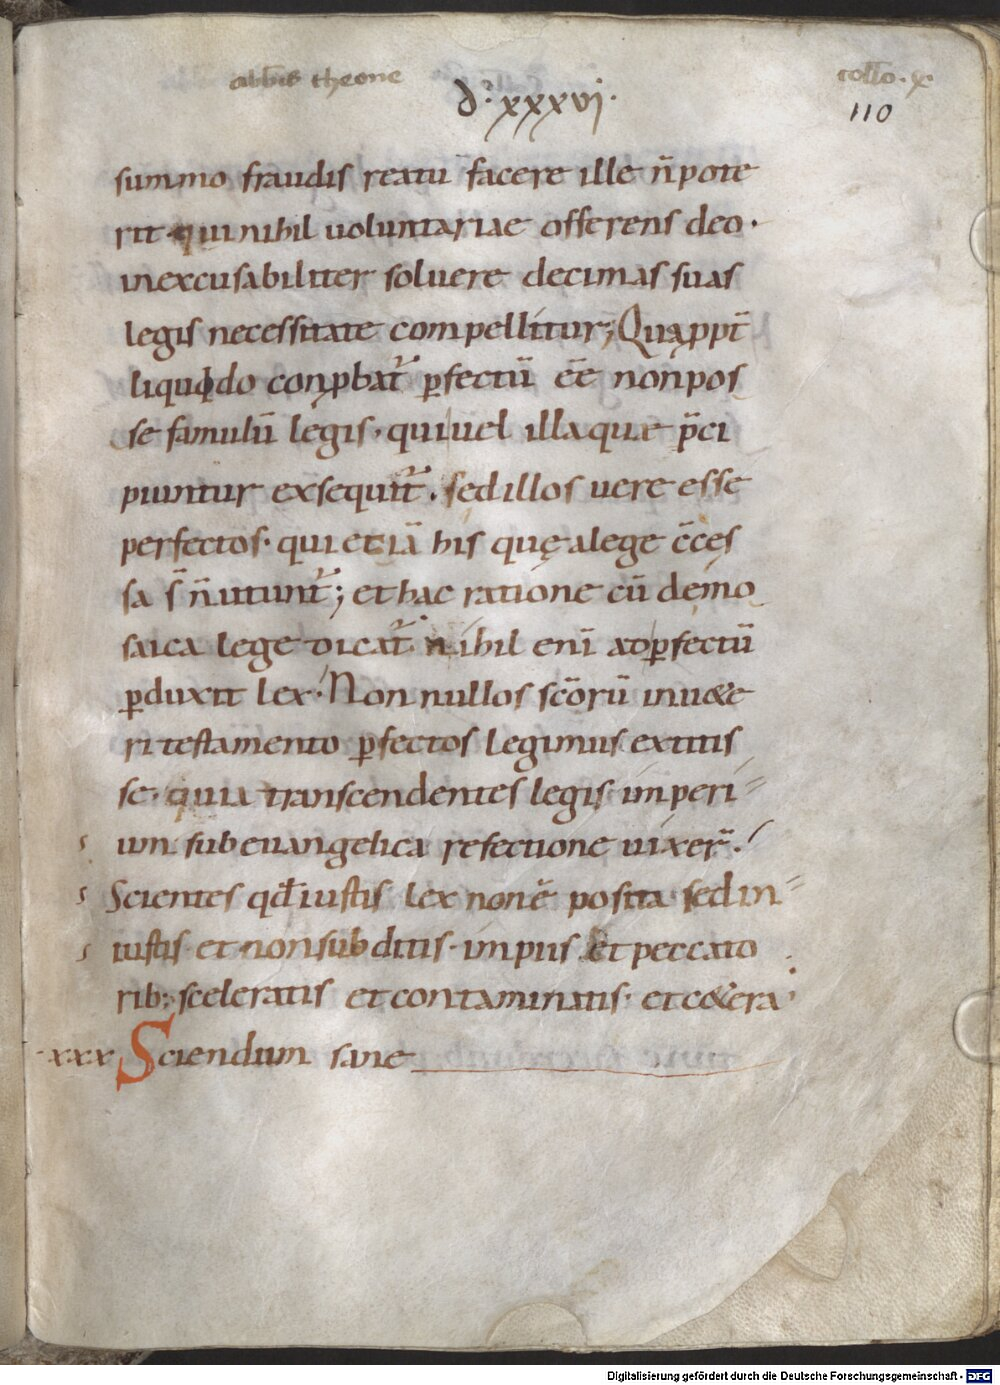 abb̄is theone
collō · x
d̄· xxxvj·
110
summo fraudis reatu facere ille n̄ pote
rit qui nihil uoluntariae offerens deo·
inexcusabiliter soluere decimas suas
legis necessitate compellitur; Quaꝓpt̄
liquido conꝓbat᷑ ꝑfectū ēē non pos
se famulū legis· qui uel illa quae p̄ci
piuntur exsequit᷑· sed illos uere esse
perfectos· qui etiā his quę a lege c̄ces
sa s̄ n̄ utunt᷑; et hac ratione cū de mo
saica lege dicat᷑ nihil enī ad ꝑfectū
ꝑduxit lex· Non nullos sc̄orū in ue&e
ri testamento ꝑfectos legimus extitis
se· quia transcendentes legis imperi
um sub euangelica refectione uixer̄·
Scientes qđ iustis lex non ē posita sed in
iustis et non subditis· impiis et peccato
rib; sceleratis et contaminatis· et c&era·
·xxx Sciendum sane
Digitalisierung gefördert durch die Deutsche Forschungsgemeinschaft - DFG